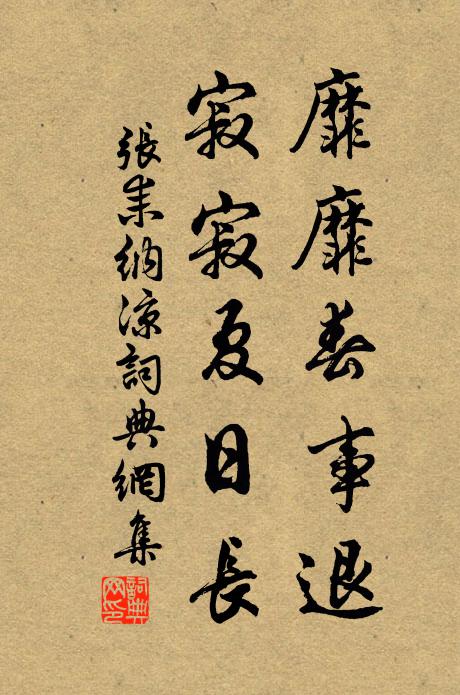 靡靡春事退
寂寂夏日長
張耒納涼詞典網集
詞典網印